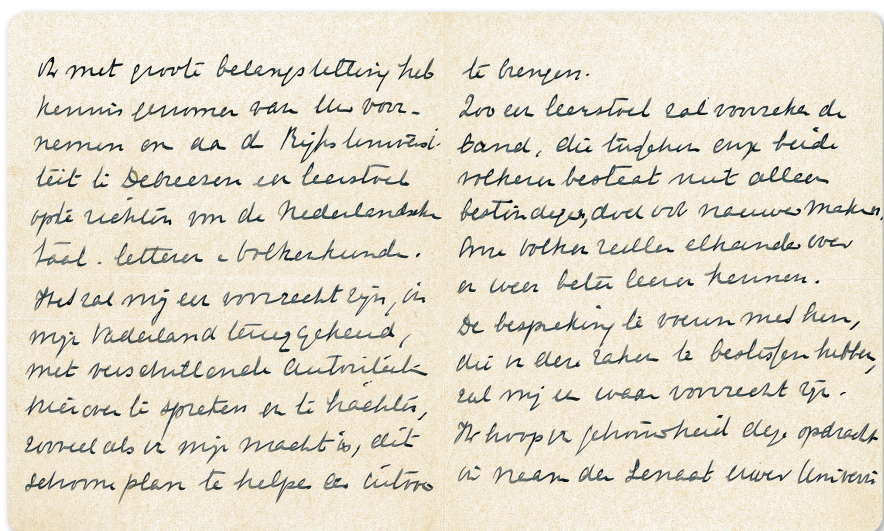 Ik met groote belangstelling heb
kennis genomen van Uw voor-
nemen om aan de Rijks Universi-
teit te Debreczen een leerstoel
op te richten voor de Nederlandsche
taal. letteren & volkenkunde.
Het zal mij een voorrecht zijn, in
mijn Vaderland teruggekeerd,
met verschillende autoriteiten
hierover te spreken en te trachten,
zooveel als in mijn macht is, dit
schoone plan te helpen ten uitvoer
te brengen.
Zoo een leerstoel zal voorzeker de
band, die tusschen onze beide
volkeren bestaat niet alleen
bestendigen, doch ook nauwer maken,
Onze volken zullen elkander over
en weer beter leeren kennen.
De bespreking te voeren met hen,
die in deze zaken te beslissen hebben,
zal mij een waar voorrecht zijn.
Ik hoop in getrouwheid deze opdracht
in naam der Senaat uwer Universi